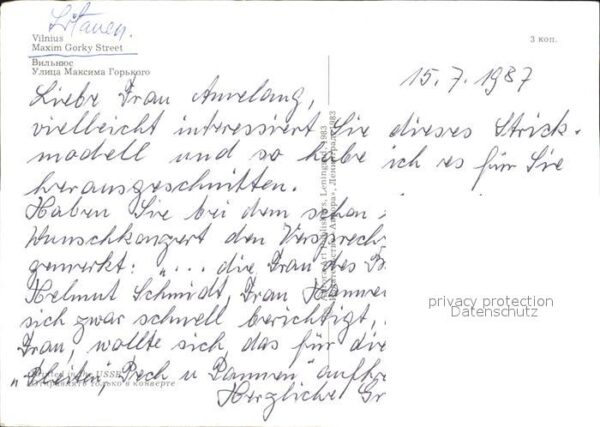 Litauen.
Vilnius
Maxim Gorky Street
Вильнюс
Улица Максима Горького
3 коп.
15.7.1987
Liebe Frau Anvelang,
vielleicht interessiert Sie dieses Strick-
modell und so habe ich es für Sie
herausgeschnitten.
Haben Sie bei dem schon
Wunschkonzert den Versprech
gemerkt: "... die Frau des B
Helmut Schmidt, Frau Hannel
sich zwar schnell berichtigt,
Frau, wollte sich das für die
"Pleiten, Pech u Pannen" aufhe
Herzliche Gr
Publishers, Leningrad, 1983
«Аврора», Ленинград, 1983
Printed in the USSR
Отправлять только в конверте
privacy protection
Datenschutz